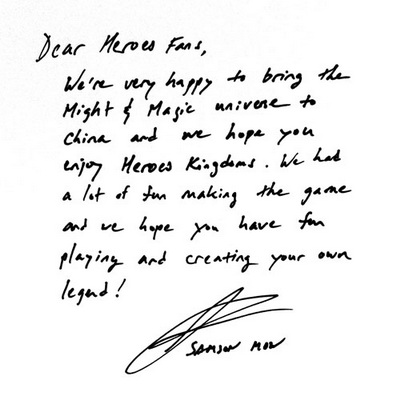 Dear Heroes Fans,
We're very happy to bring the
Might & Magic universe to
China and we hope you
enjoy Heroes Kingdoms. We had
a lot of fun making the game
and we hope you have fun
playing and creating your own
legend!
SAMSON MOW